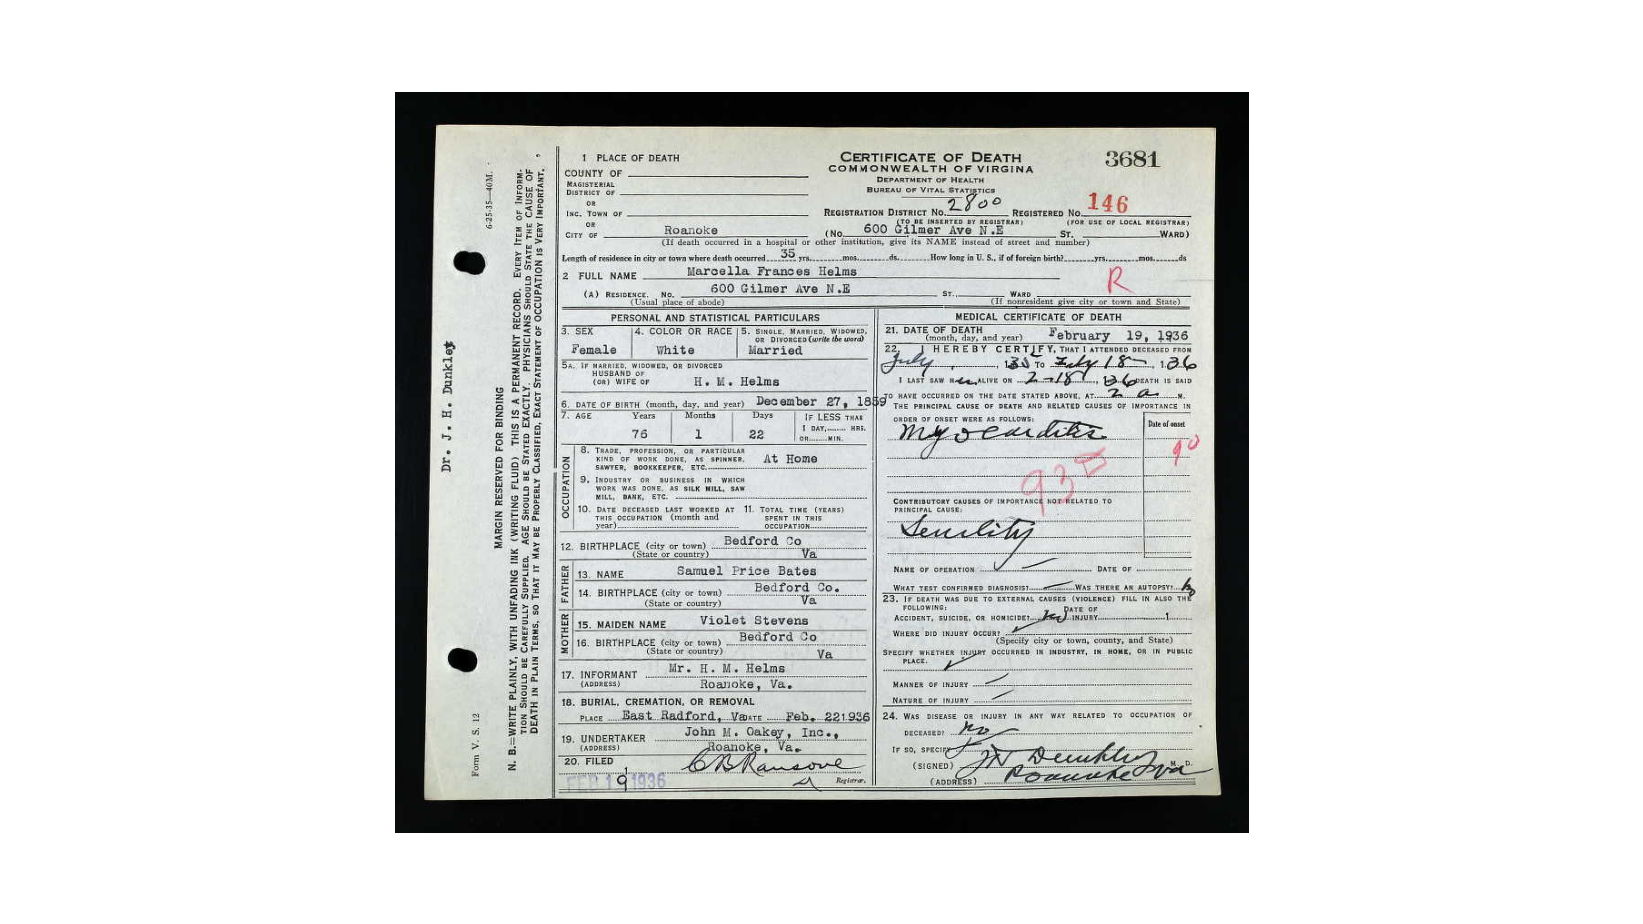 1 PLACE OF DEATH
COUNTY OF
MAGISTERIAL
DISTRICT OF
OR
INC. TOWN OF
OR
CITY OF Roanoke
CERTIFICATE OF DEATH
COMMONWEALTH OF VIRGINA
DEPARTMENT OF HEALTH
BUREAU OF VITAL STATISTICS
3681
REGISTRATION DISTRICT NO. 2800 REGISTERED NO. 146
(TO BE INSERTED BY REGISTRAR) (FOR USE OF LOCAL REGISTRAR)
(No. 600 Gilmer Ave N.E ST. WARD)
(If death occurred in a hospital or other institution, give its NAME instead of street and number)
Length of residence in city or town where death occurred 35 yrs. mos. ds. How long in U. S., if of foreign birth? yrs. mos. ds
2 FULL NAME Marcella Frances Helms
R
(A) RESIDENCE. NO. 600 Gilmer Ave N.E ST., WARD
(Usual place of abode) (If nonresident give city or town and State)
PERSONAL AND STATISTICAL PARTICULARS
3. SEX 4. COLOR OR RACE 5. SINGLE, MARRIED, WIDOWED,
OR DIVORCED (write the word)
Female White Married
5A. IF MARRIED, WIDOWED, OR DIVORCED
HUSBAND OF
(OR) WIFE OF H. M. Helms
6. DATE OF BIRTH (month, day, and year) December 27, 1859
7. AGE Years Months Days IF LESS THAN
1 DAY, HRS.
OR MIN.
76 1 22
OCCUPATION
8. TRADE, PROFESSION, OR PARTICULAR
KIND OF WORK DONE, AS SPINNER,
SAWYER, BOOKKEEPER, ETC. At Home
9. INDUSTRY OR BUSINESS IN WHICH
WORK WAS DONE, AS SILK MILL, SAW
MILL, BANK, ETC.
10. DATE DECEASED LAST WORKED AT 11. TOTAL TIME (YEARS)
THIS OCCUPATION (month and SPENT IN THIS
year) OCCUPATION
12. BIRTHPLACE (city or town) Bedford Co
(State or country) Va
FATHER
13. NAME Samuel Price Bates
14. BIRTHPLACE (city or town) Bedford Co.
(State or country) Va
MOTHER
15. MAIDEN NAME Violet Stevens
16. BIRTHPLACE (city or town) Bedford Co
(State or country) Va
17. INFORMANT Mr. H. M. Helms
(ADDRESS) Roanoke, Va.
18. BURIAL, CREMATION, OR REMOVAL
PLACE East Radford, Va DATE Feb. 22 1936
19. UNDERTAKER John M. Oakey, Inc.,
(ADDRESS) Roanoke, Va.
20. FILED
FEB 19 1936 Registrar.
MEDICAL CERTIFICATE OF DEATH
21. DATE OF DEATH
(month, day, and year) February 19, 1936
22. I HEREBY CERTIFY, THAT I ATTENDED DECEASED FROM
July , 1935 TO Feby 18 , 1936
I LAST SAW H ALIVE ON 2-18 , 1936 DEATH IS SAID
TO HAVE OCCURRED ON THE DATE STATED ABOVE, AT 2 a M.
THE PRINCIPAL CAUSE OF DEATH AND RELATED CAUSES OF IMPORTANCE IN
ORDER OF ONSET WERE AS FOLLOWS: Date of onset
Myocarditis
90
93
CONTRIBUTORY CAUSES OF IMPORTANCE NOT RELATED TO
PRINCIPAL CAUSE:
Senility
NAME OF OPERATION DATE OF
WHAT TEST CONFIRMED DIAGNOSIS? WAS THERE AN AUTOPSY? No
23. IF DEATH WAS DUE TO EXTERNAL CAUSES (VIOLENCE) FILL IN ALSO THE
FOLLOWING:
ACCIDENT, SUICIDE, OR HOMICIDE? No DATE OF INJURY 1
WHERE DID INJURY OCCUR?
(Specify city or town, county, and State)
SPECIFY WHETHER INJURY OCCURRED IN INDUSTRY, IN HOME, OR IN PUBLIC
PLACE.
MANNER OF INJURY
NATURE OF INJURY
24. WAS DISEASE OR INJURY IN ANY WAY RELATED TO OCCUPATION OF
DECEASED? No
IF SO, SPECIFY
(SIGNED) M. D.
(ADDRESS) Roanoke Va
Dr. J. H. Dunkley
6-25-35—40M.
MARGIN RESERVED FOR BINDING
N. B.—WRITE PLAINLY, WITH UNFADING INK (WRITING FLUID) THIS IS A PERMANENT RECORD. EVERY ITEM OF INFORM-
TION SHOULD BE CAREFULLY SUPPLIED. AGE SHOULD BE STATED EXACTLY. PHYSICIANS SHOULD STATE THE CAUSE OF
DEATH IN PLAIN TERMS, SO THAT IT MAY BE PROPERLY CLASSIFIED, EXACT STATEMENT OF OCCUPATION IS VERY IMPORTANT.
Form V. S. 12